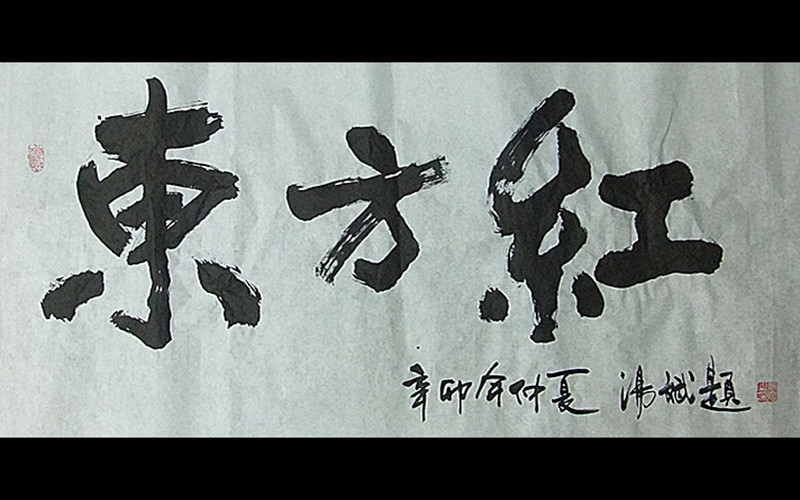 東方紅
辛卯年仲夏 湯斌題